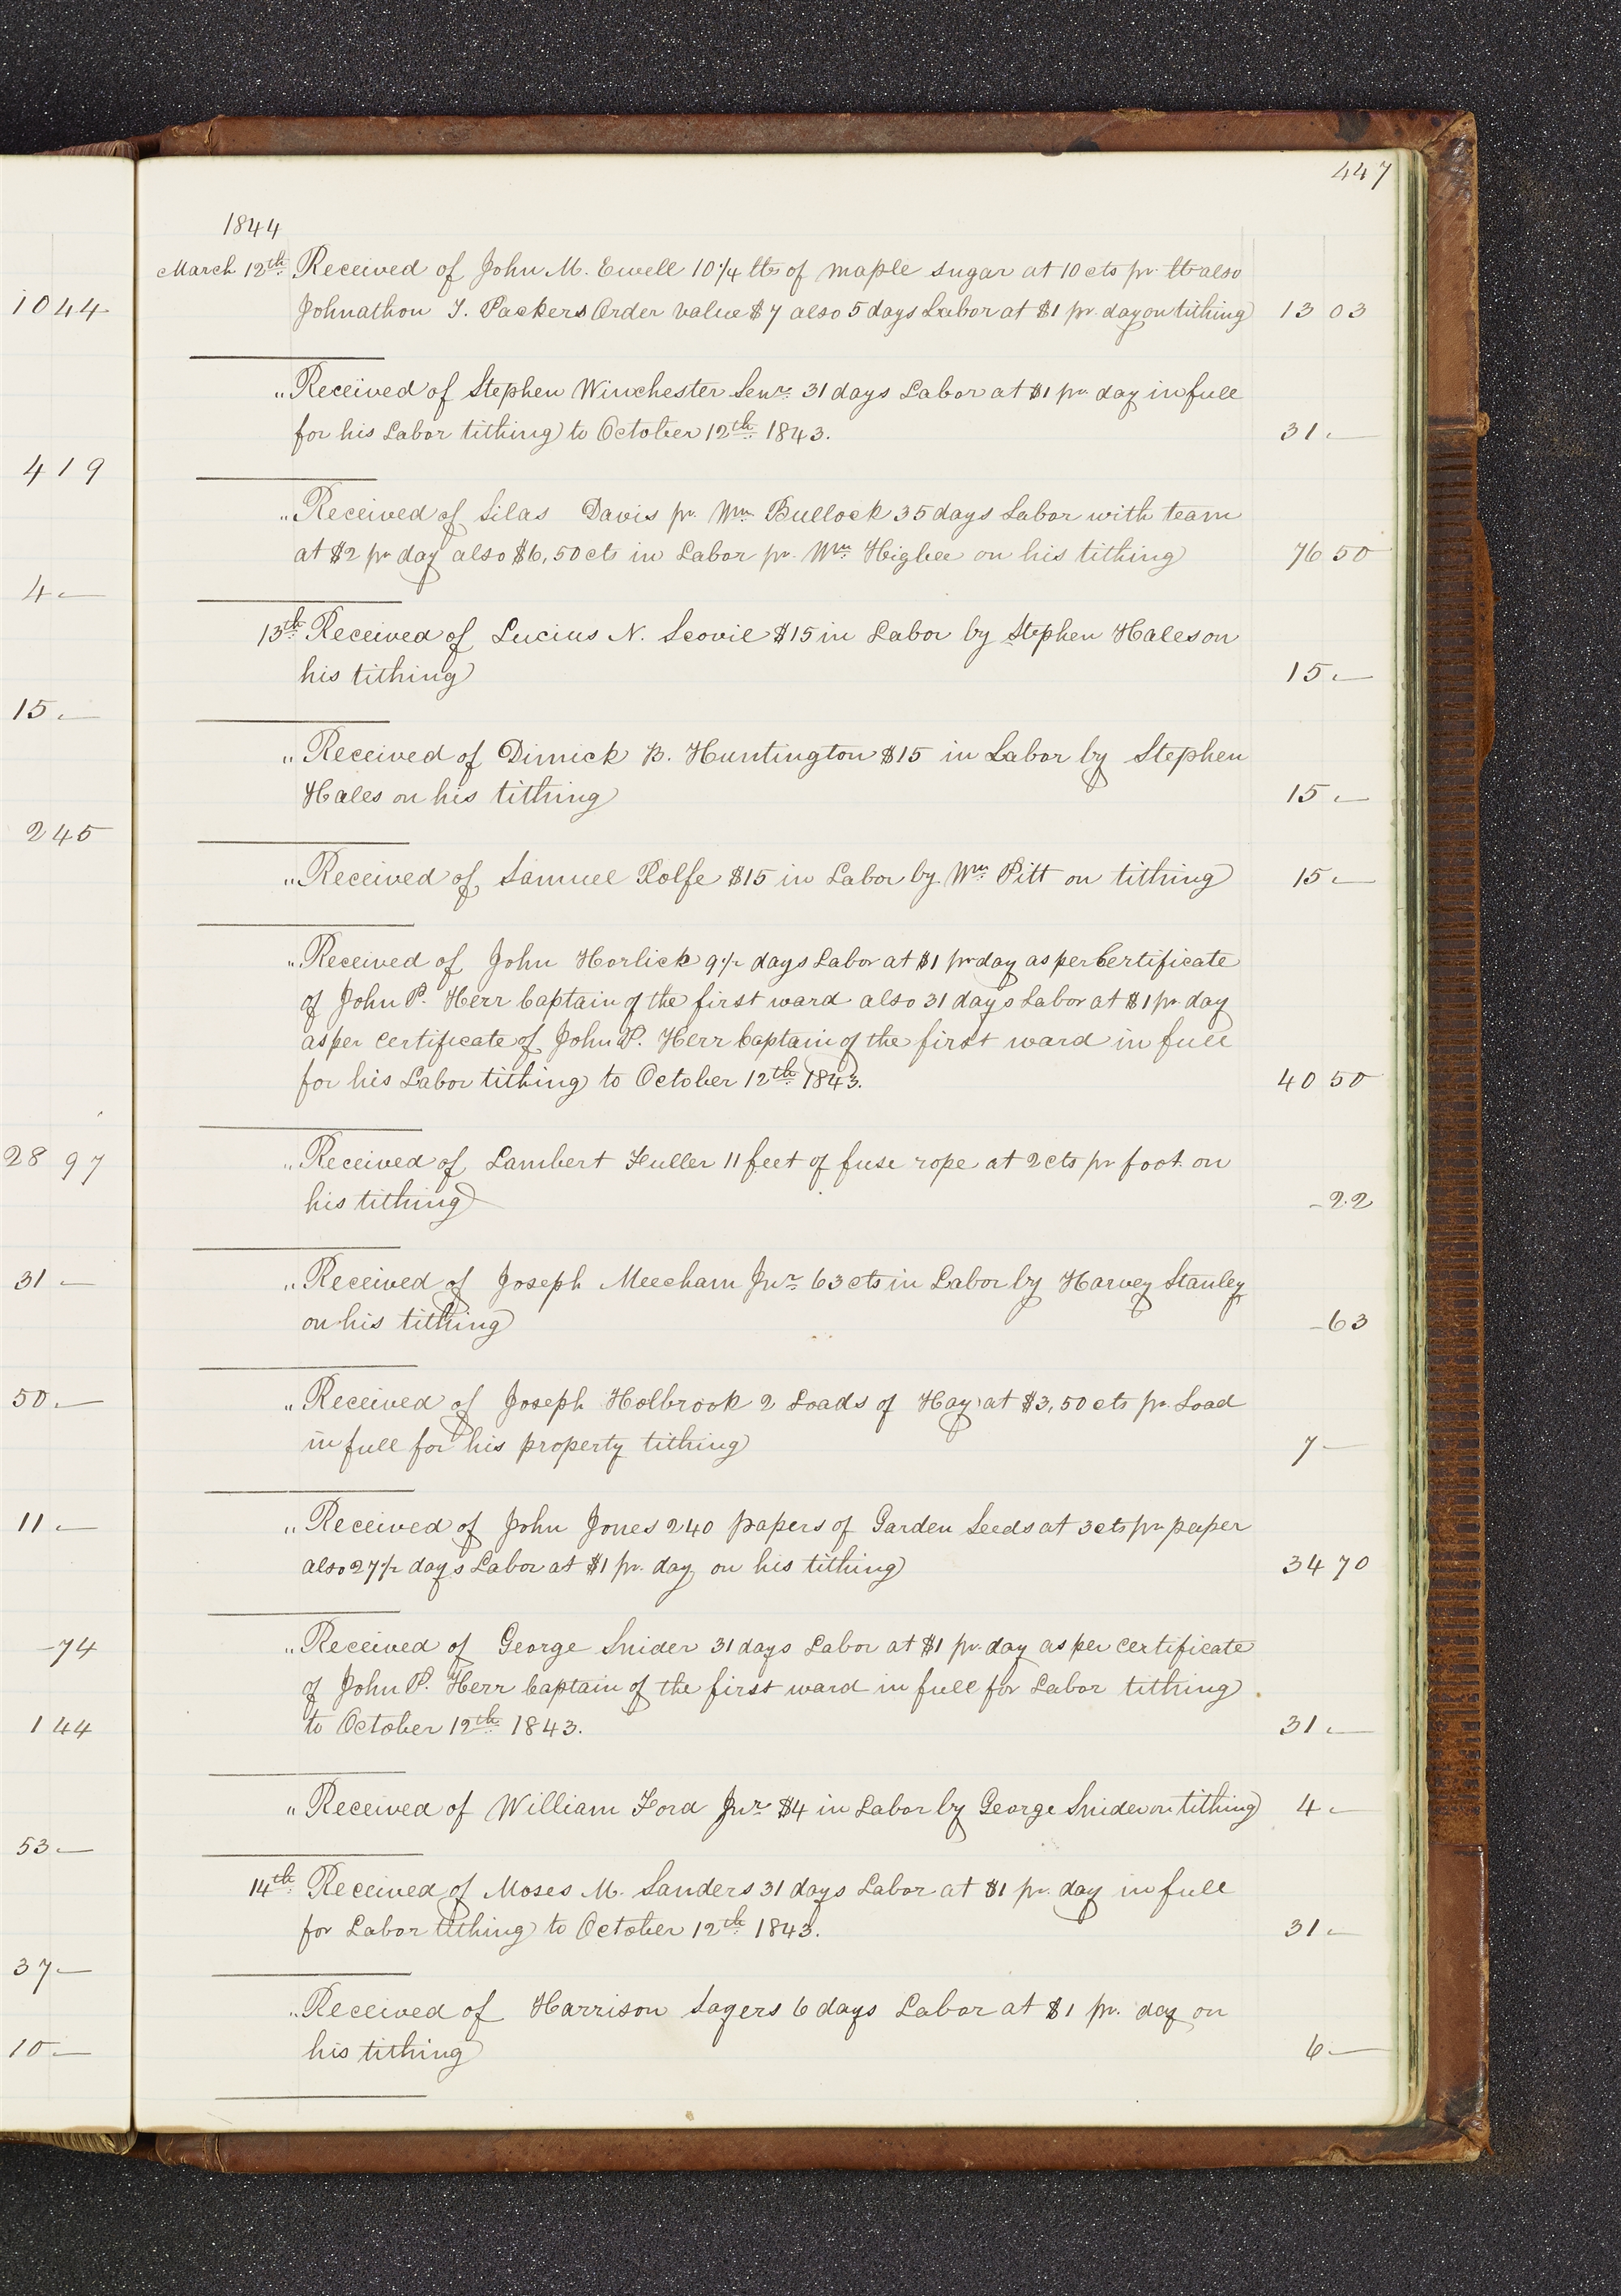 447
1844
March 12th. Received of John M. Ewell 10 1/4 lbs of maple sugar at 10 cts pr. lb also
1044
Johnathon T. Packers Order value $7 also 5 days Labor at $1 pr. day on tithing 13 03
" Received of Stephen Winchester Senr. 31 days Labor at $1 pr. day in full
for his Labor tithing to October 12th. 1843. 31.—
419
" Received of Silas Davis pr. Wm Bullock 35 days Labor with team
at $2 pr day also $6,50 cts in Labor pr. Wm. Higbee on his tithing 76 50
4.—
13th. Received of Lucius N. Scovil $15 in Labor by Stephen Hales on
his tithing 15.—
15.—
" Received of Dimick B. Huntington $15 in Labor by Stephen
Hales on his tithing 15.—
245
" Received of Samuel Rolfe $15 in Labor by Wm. Pitt on tithing 15.—
" Received of John Horlick 9 1/2 days Labor at $1 pr day as per Certificate
of John P. Herr Captain of the first ward also 31 days Labor at $1 pr. day
as per certificate of John P. Herr Captain of the first ward in full
for his Labor tithing to October 12th. 1843. 40 50
28 97
" Received of Lambert Fuller 11 feet of fuse rope at 2 cts pr foot. on
his tithing -22
31 —
" Received of Joseph Meecham Jnr. 63 cts in Labor by Harvey Stanley
on his tithing -63
50.—
" Received of Joseph Holbrook 2 Loads of Hay at $3,50 cts pr. Load
in full for his property tithing 7—
11.—
" Received of John Jones 240 papers of Garden Seeds at 3 cts pr paper
also 27 1/2 days Labor at $1 pr. day on his tithing 34 70
-74
" Received of George Snider 31 days Labor at $1 pr. day as per certificate
of John P. Herr Captain of the first ward in full for Labor tithing
144
to October 12th. 1843. 31.—
" Received of William Ford Jnr. $4 in Labor by George Snider on tithing 4.—
53.—
14th. Received of Moses M. Sanders 31 days Labor at $1 pr. day in full
for Labor tithing to October 12th. 1843. 31.—
37—
" Received of Harrison Sagers 6 days Labor at $1 pr. day on
10—
his tithing 6—